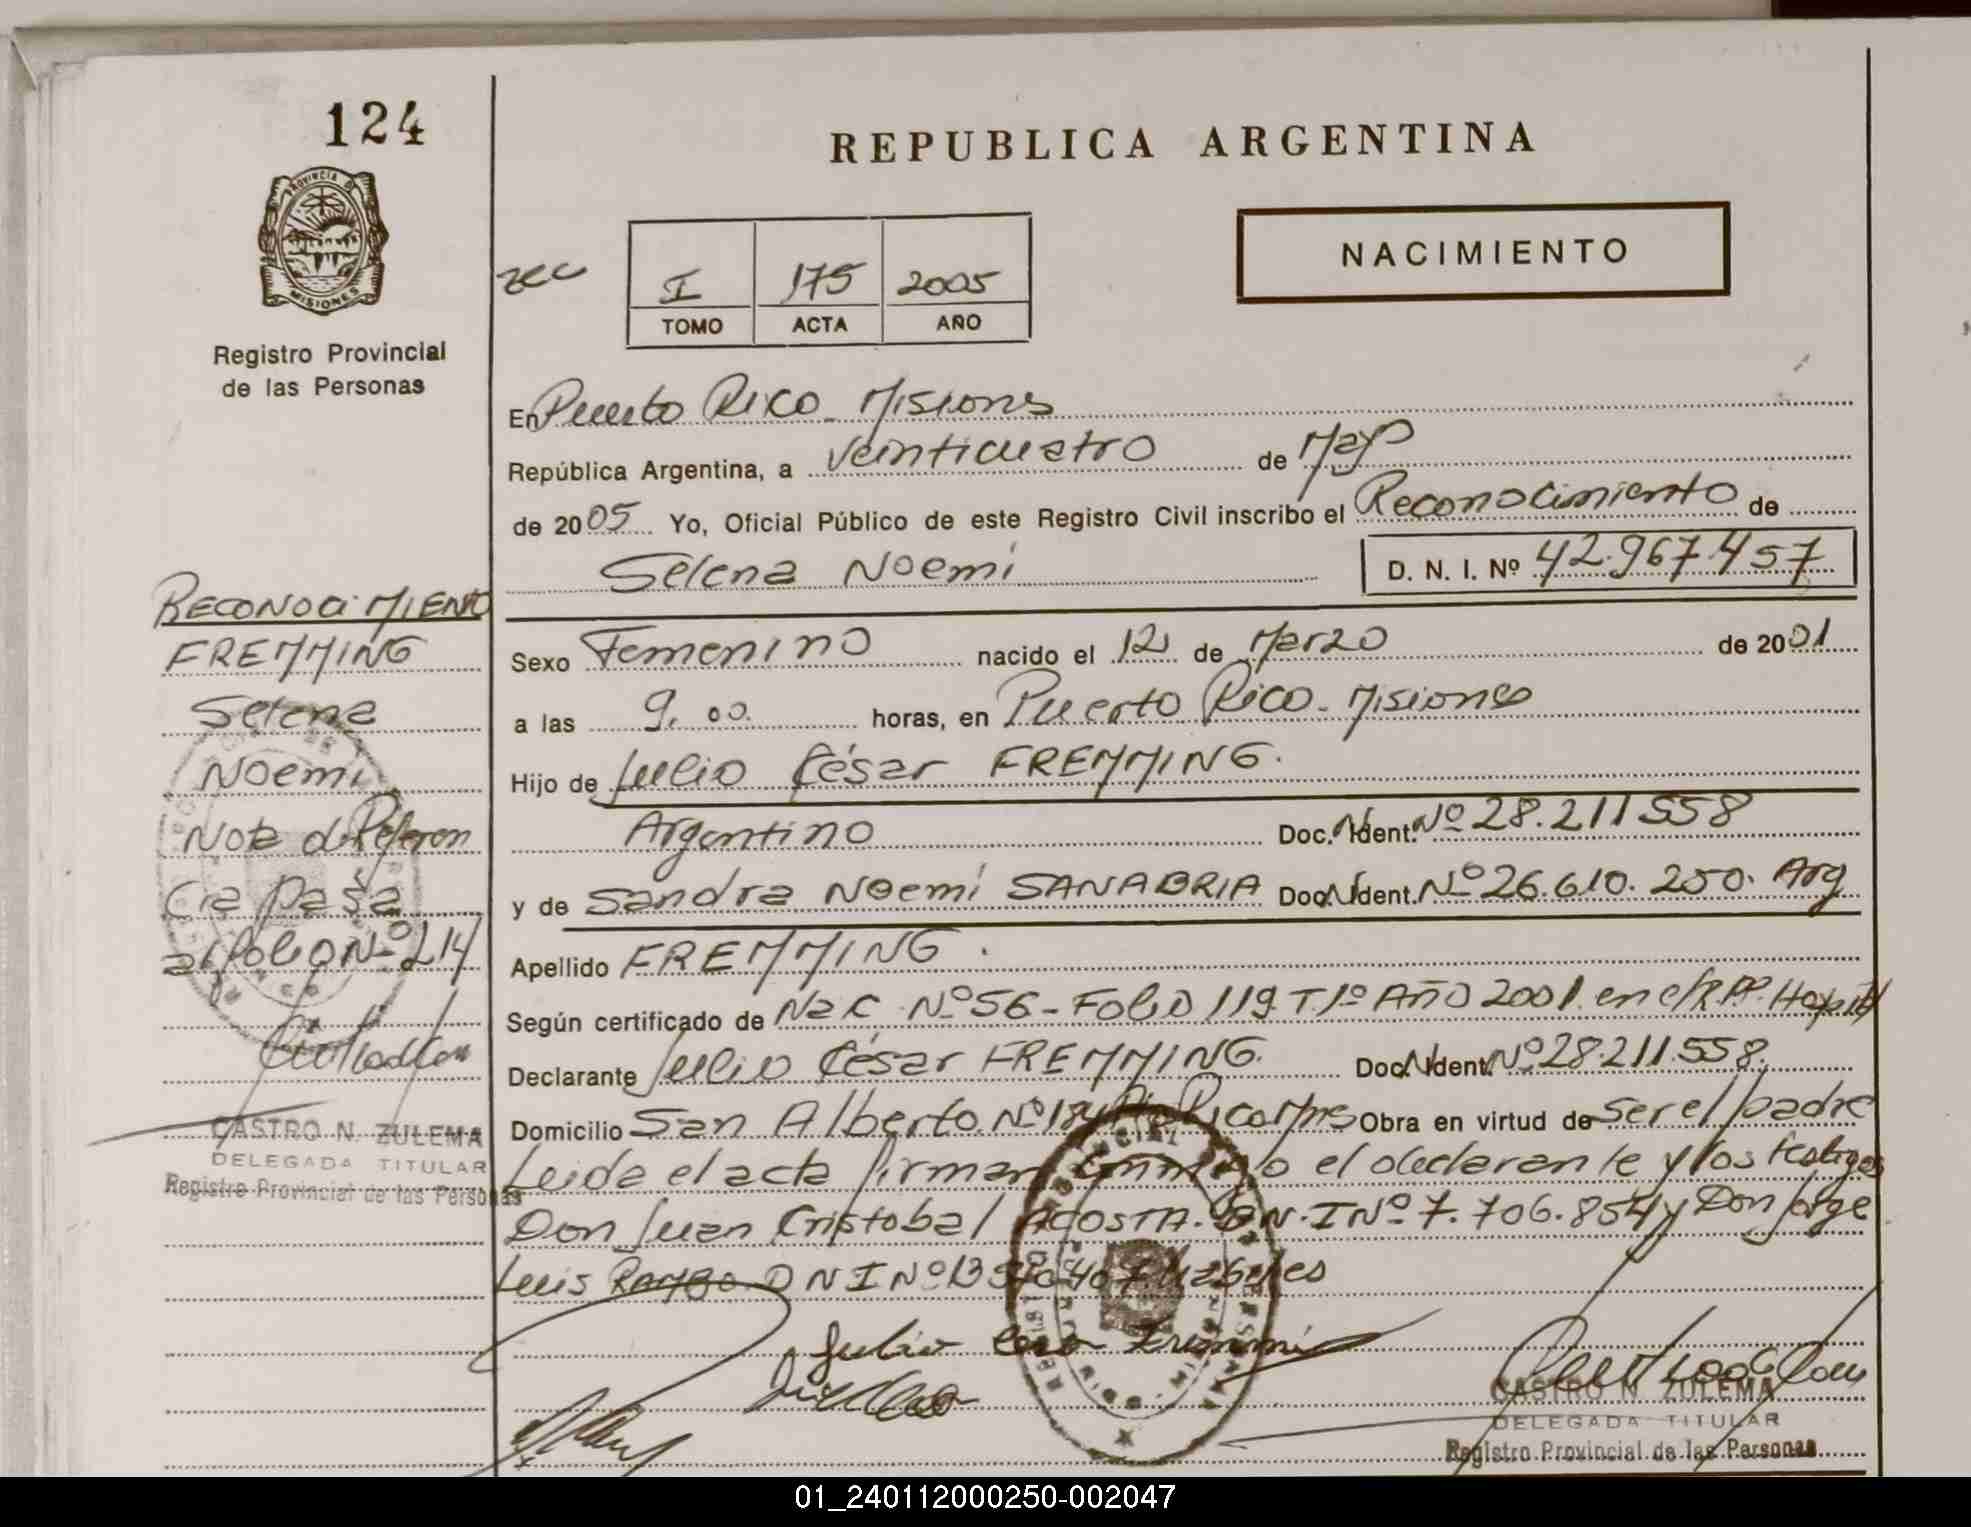 124
PROVINCIA DE
MISIONES
Registro Provincial
de las Personas
REPUBLICA ARGENTINA
NACIMIENTO
I 175 2005
TOMO ACTA AÑO
En Puerto Rico - Misiones
República Argentina, a veinticuatro de Mayo
de 2005 Yo, Oficial Público de este Registro Civil inscribo el Reconocimiento de
Selena Noemí D. N. I. Nº 42.967.457
Sexo Femenino nacido el 12 de Marzo de 2001
a las 9,00 horas, en Puerto Rico - Misiones
Hijo de Julio César FREMMING.
Argentino Doc. N. Ident. Nº 28.211558
y de Sandra Noemí SANABRIA Doc. N. Ident. Nº 26.610.250. Arg
Apellido FREMMING.
Según certificado de Nac. Nº 56 - Folio 119. T. 1º Año 2001. en
Declarante Julio César FREMMING. Doc. N. Ident. Nº 28.211.558.
Domicilio San Alberto. Obra en virtud de ser el padre
Leida el acta firman conmigo el declarante y los testigos
Don Juan Cristobal ACOSTA. D.N.I Nº 7.706.854 y Don Jorge
Luis RAMBO D N I Nº
RECONOCIMIENTO
FREMMING
Selena
Noemí
Nota de Referen
cia pasa
al Folio Nº 214
CASTRO N. ZULEMA
DELEGADA TITULAR
Registro Provincial de las Personas
CASTRO N. ZULEMA
DELEGADA TITULAR
Registro Provincial de las Personas
01_240112000250-002047